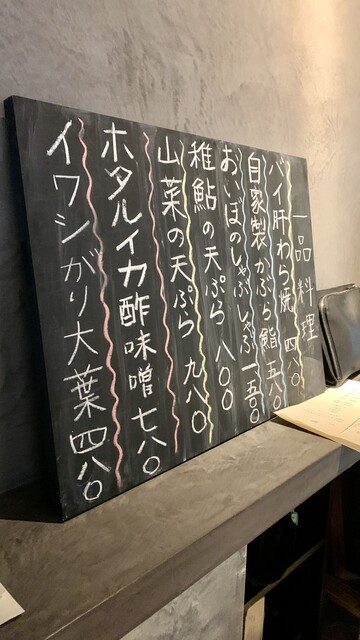 一品料理
バイ肝わら焼 四八〇
自家製かぶら鮨 五八〇
おいぼのしゃぶしゃぶ 一五〇〇
稚鮎の天ぷら 八〇〇
山菜の天ぷら 九八〇
ホタルイカ酢味噌 七八〇
イワシがり大葉 四八〇